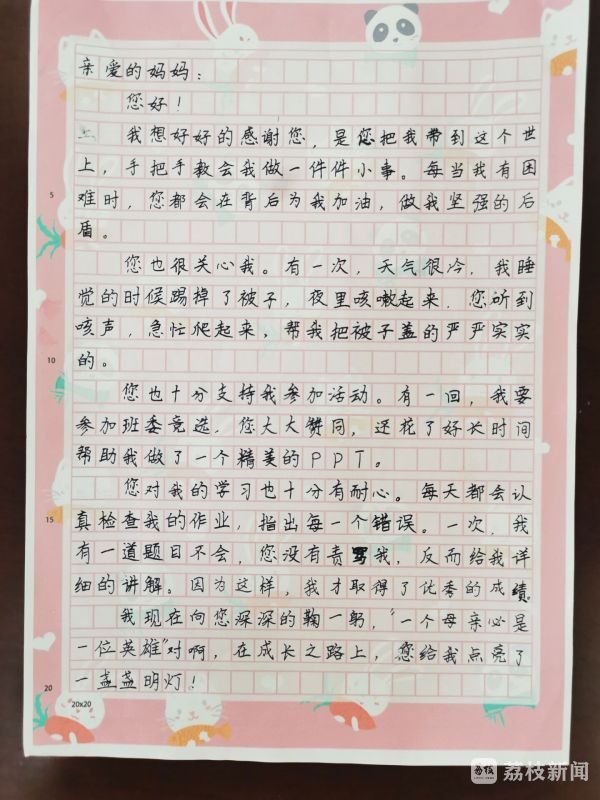 亲爱的妈妈：
您好！
我想好好的感谢您，是您把我带到这个世
上，手把手教会我做一件件小事。每当我有困
5
难时，您都会在背后为我加油，做我坚强的后
盾。
您也很关心我。有一次，天气很冷，我睡
觉的时候踢掉了被子，夜里咳嗽起来，您听到
咳声，急忙爬起来，帮我把被子盖的严严实实
10
的。
您也十分支持我参加活动。有一回，我要
参加班委竞选，您大大赞同，还花了好长时间
帮助我做了一个精美的PPT。
您对我的学习也十分有耐心。每天都会认
15
真检查我的作业，指出每一个错误。一次，我
有一道题目不会，您没有责骂我，反而给我详
细的讲解。因为这样，我才取得了优秀的成绩
我现在向您深深的鞠一躬，“一个母亲必是
一位英雄”对啊，在成长之路上，您给我点亮了
20
一盏盏明灯！
20x20
荔枝新闻